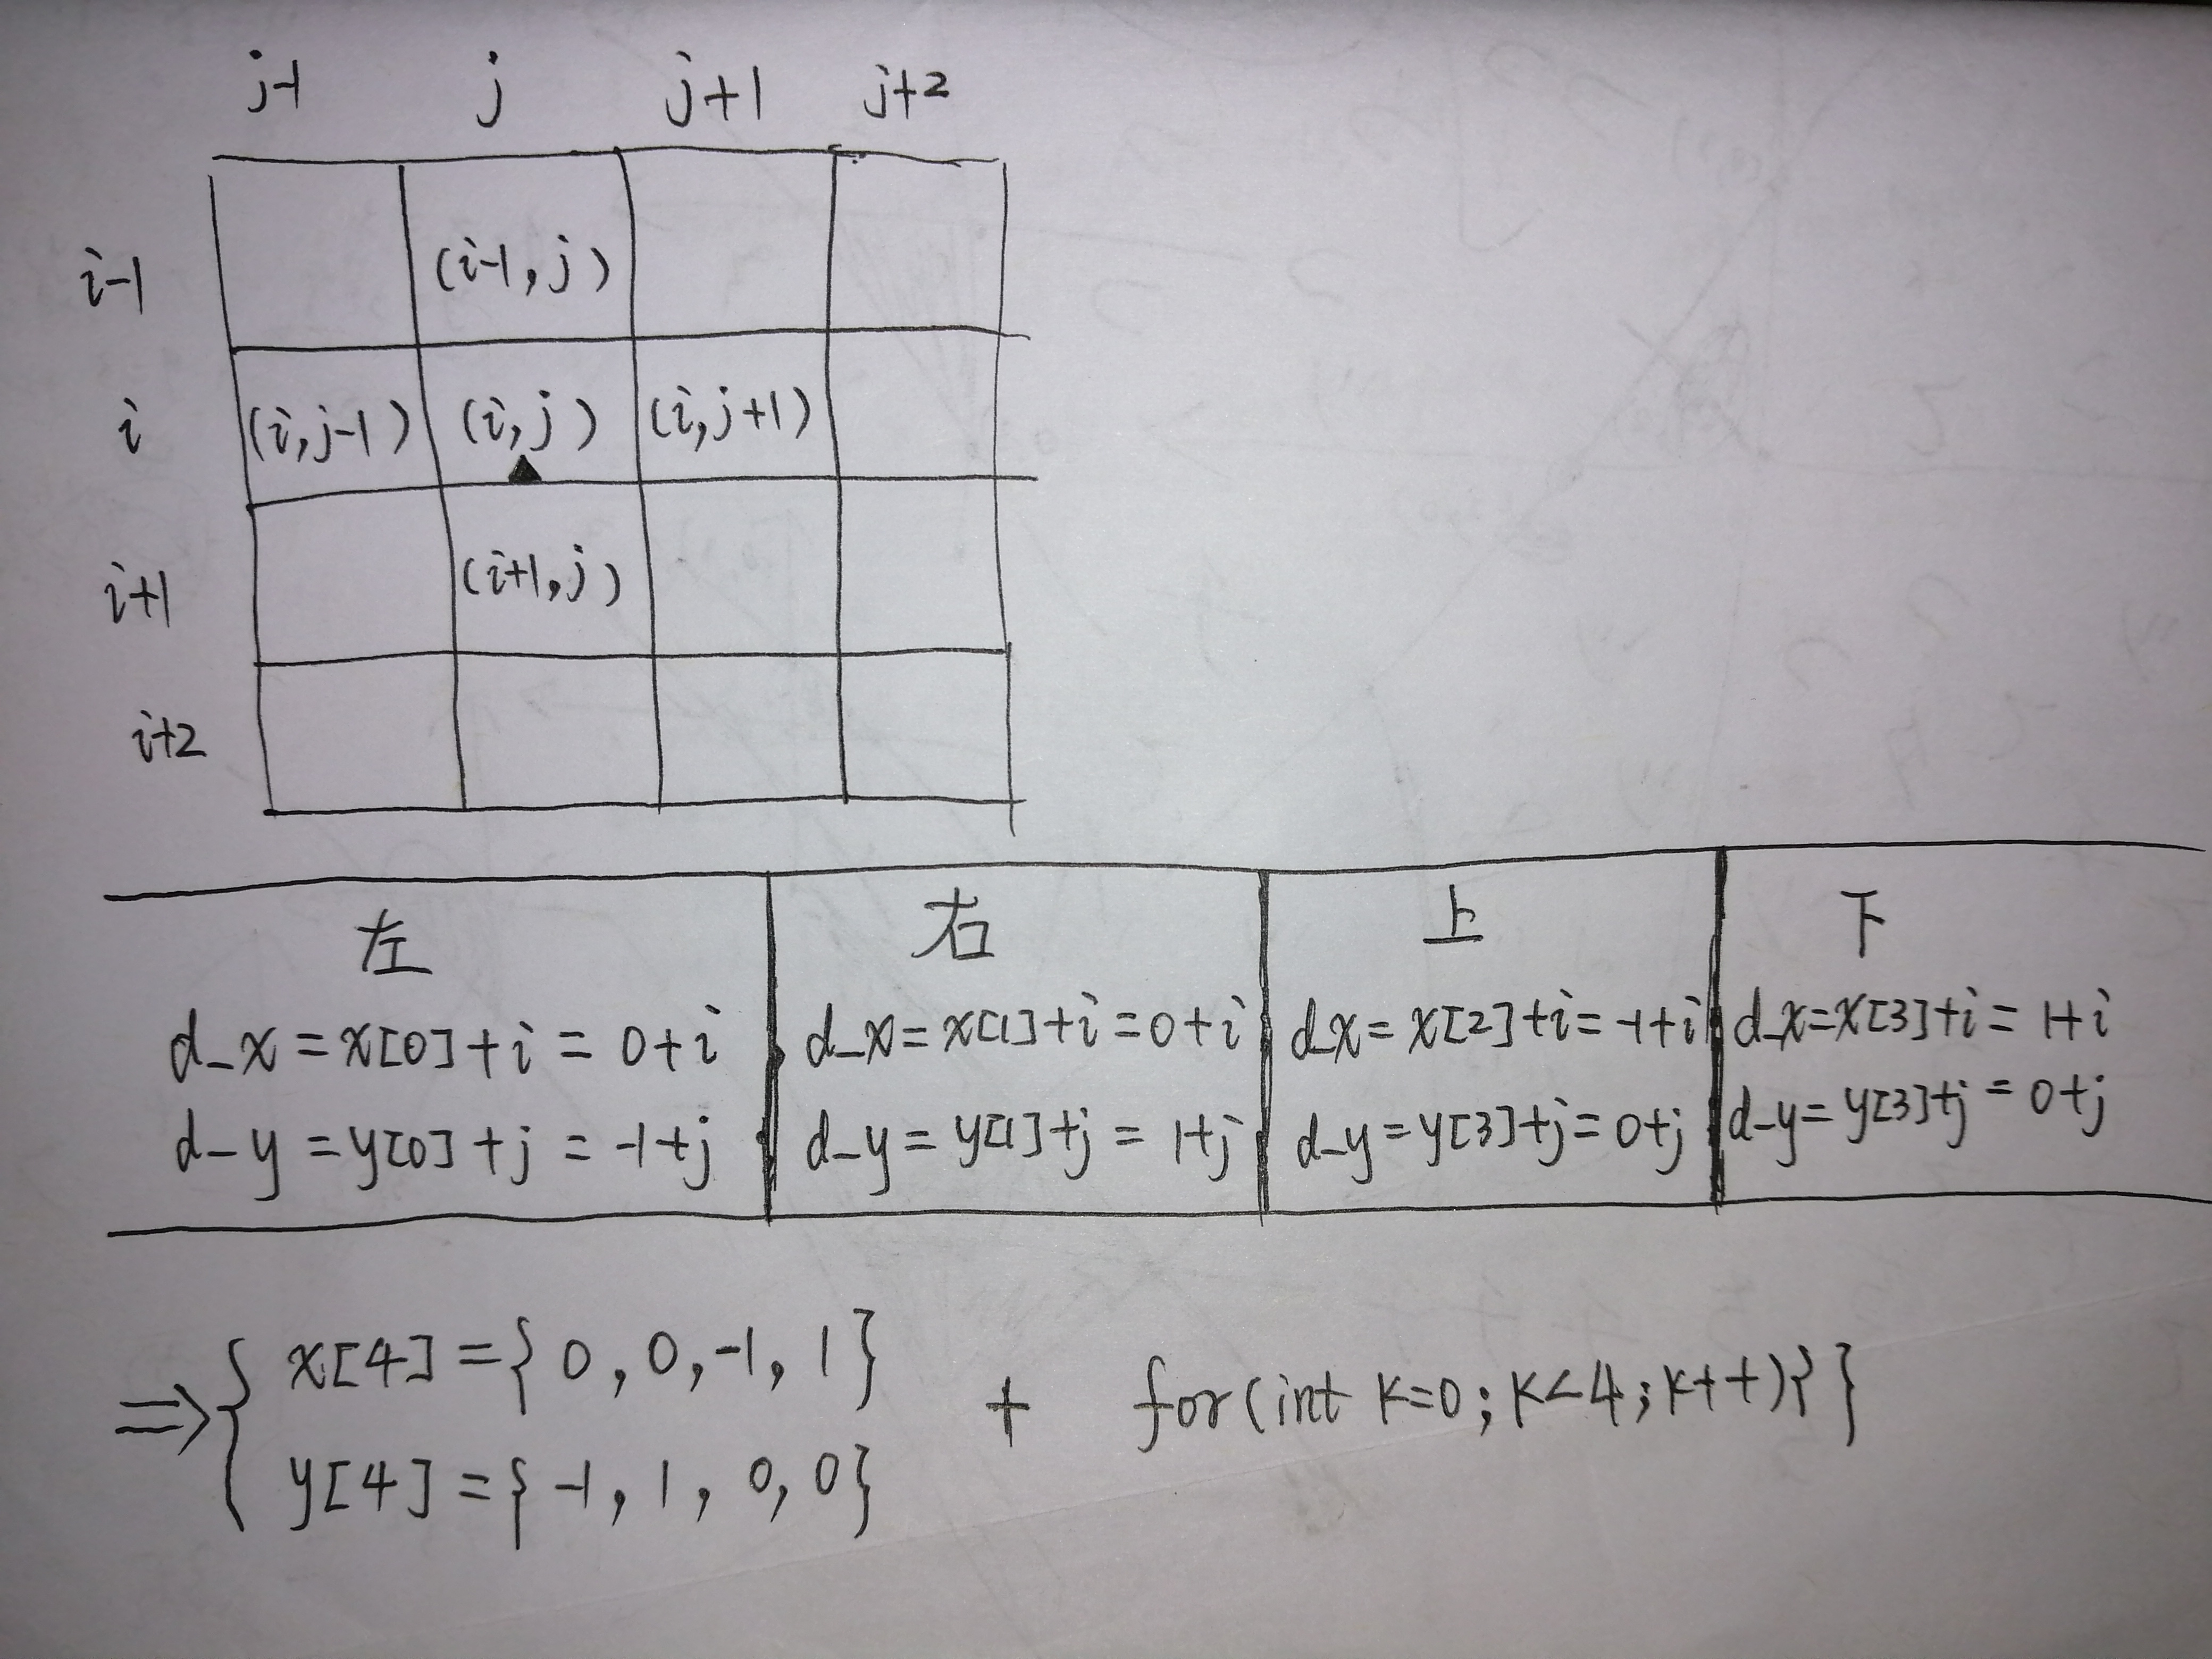 j-1 j j+1 j+2
i-1 (i-1,j)
i (i,j-1) (i,j) (i,j+1)
i+1 (i+1,j)
i+2
左 右 上 下
d_x=x[0]+i=0+i d_x=x[1]+i=0+i d_x=x[2]+i=-1+i d_x=x[3]+i=1+i
d_y=y[0]+j=-1+j d_y=y[1]+j=1+j d_y=y[3]+j=0+j d_y=y[3]+j=0+j
⇒{ x[4]={0,0,-1,1} + for(int k=0;k<4;k++){}
y[4]={-1,1,0,0}